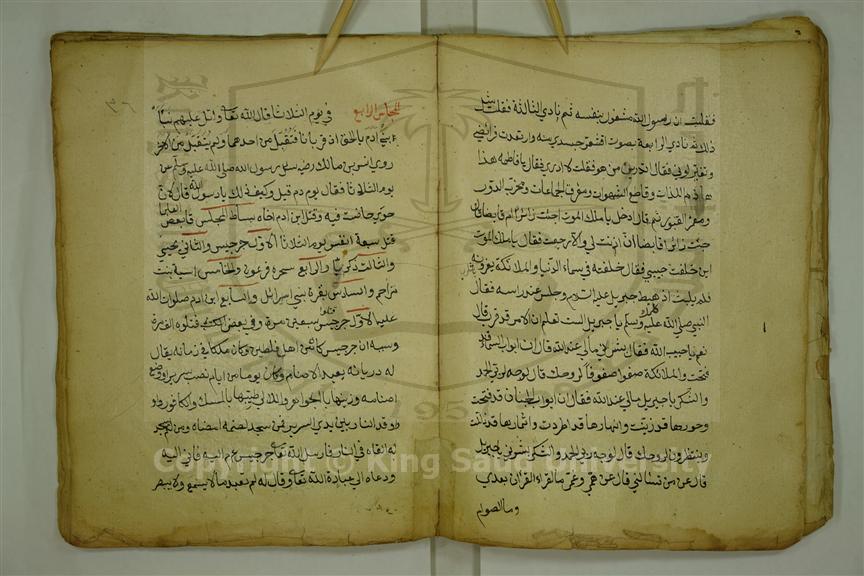 فقلت ان رسول الله مشغول بنفسه ثم نادي الثالثة فقلت مثل
ذلك ثم نادي الرابعة بصوت اقشعر جسدي منه وارتعدت فرائصي
وتغير لوني فقال اتدرين من هو فقلت لا ادري فقال يا فاطمة هذا
هاذم اللذات وقاطع الشهوات ومفرق الجماعات ومخرب الدور
ومعمر القبور ثم قال ادخل يا ملك الموت اجئت زائرا ام قابضا قال
جئت زائرا وقابضا ان اذنت لي والا رجعت فقال يا ملك الموت
اين خلفت حبيبي فقال خلفته في سماء الدنيا والملائكة يعزونه
فلم يلبث اذ هبط جبريل عليه السلام وجلس عند راسه فقال
النبي صلي الله عليه وسلم يا جبريل الست تعلم ان الامر قد قرب قال
نعم يا حبيب الله فقال بشرني ما لي عند الله قال ان ابواب السما قد
فتحت والملائكة صفوا صفوفا لروحك قال لوجه ربي الحمد
والشكر يا جبريل ما لي عند الله فقال ان ابواب الجنان قد فتحت
وحورها قد زينت وانهارها قد اطردت واثمارها قد تدلت
وينتظرون لروحك قال لوجه ربي الحمد والشكر بشرني يا جبريل
قال عن من تسئالني قال عن همي وغمي ما لقراء القران بعدي
وما لصوام
٣٦
المجلس الرابع في يوم الثلاثا قال الله تعالي واتل عليهم نبأ
ابني ادم بالحق اذ قربا قربانا فتقبل من احدهما ولم يتقبل من الاخر
روي انس بن مالك رضي سئل رسول الله صلي الله عليه وسلم عن
يوم الثلاثا فقال يوم دم قيل وكيف ذلك يا رسول الله قال لان
حوي حاضت فيه وقتل ابن ادم اخاه بساط المجلس قال بعض العلما
قتل سبعة انفس يوم الثلاثا الاول جرجيس والثاني يحيي
والثالث زكريا والرابع سحرة فرعون والخامس اسية بنت
مزاحم والسادس بقرة بني اسرائل والسابع ابن ادم صلوات الله
عليه الاول جرجيس قتلوه سبعين مرة وفي بعض الكتب قتلوه الف مرة
وسببه ان جرجيس كان من اهل فلسطين وكان ملكا في زمانه يقال
له دريانه يعبد الاصنام وكان يوما من ايام نصب سريرا ووضع
اصنامه وزينها بالجواهر واللالي طيبها بالمسك والكافور واو
قد النار بين يدي السرير فمن سجد لصنمه امضاه ومن لم يسجد
له القاه في النار فارسل الله تعالي جرجيس عم اليه فاتي اليه
ودعاه الي عبادة الله تعالي وقال له لم تعبد ما لا يسمع ولا يبصر
Copyright © King Saud University
1957